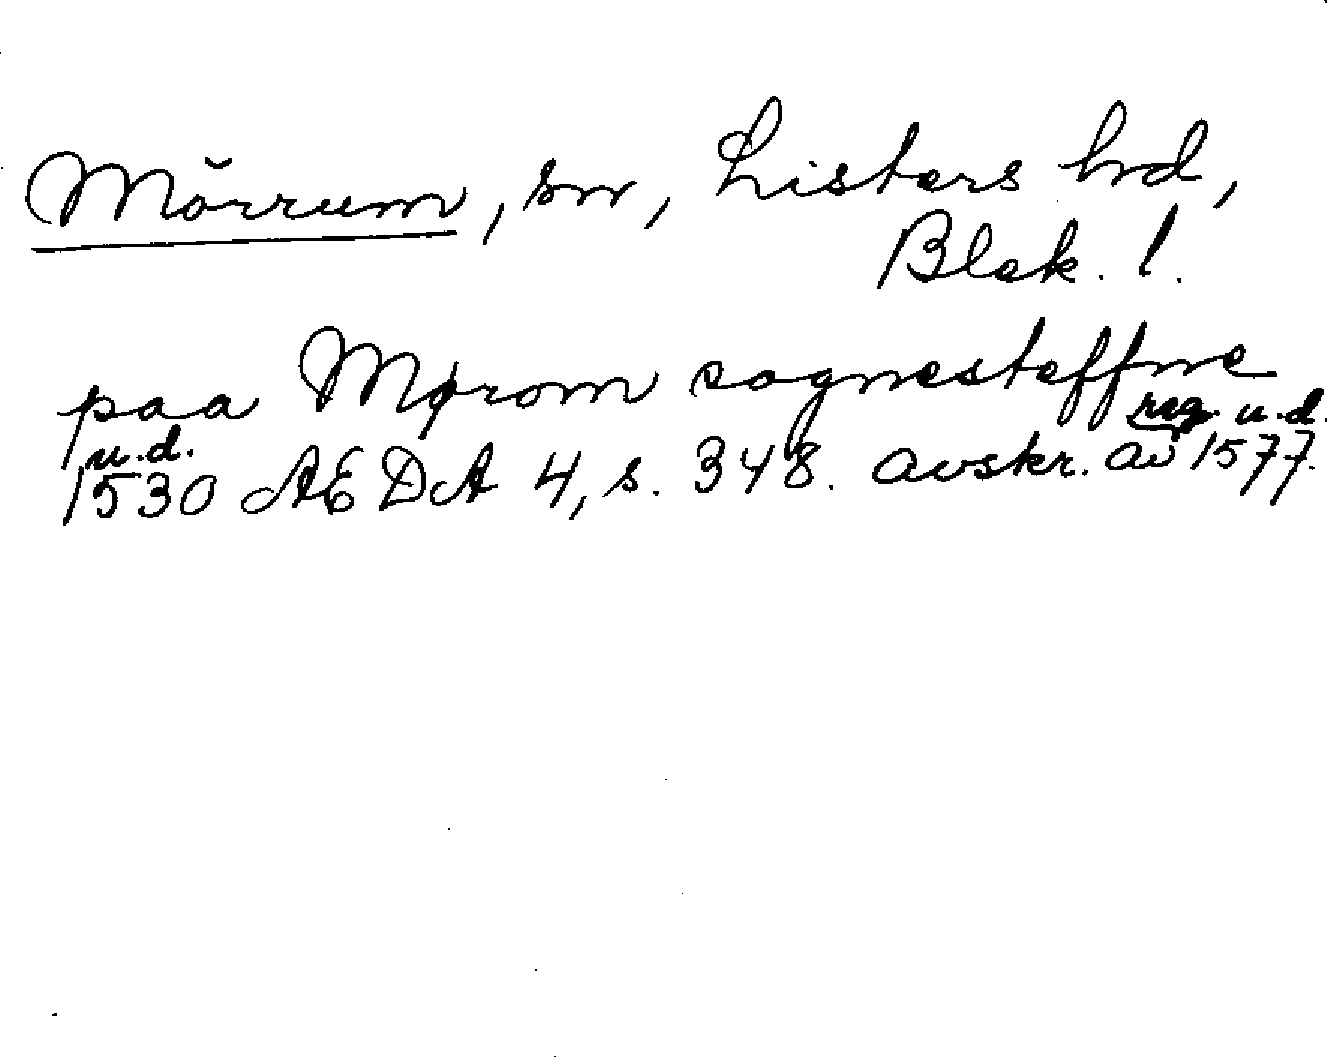 Mörrum, sn, Listers hd,
Blek. l.
paa Mørom sognesteffne
u.d. reg. u.d.
1530 AEDA 4, s. 348. avskr. av 1577.